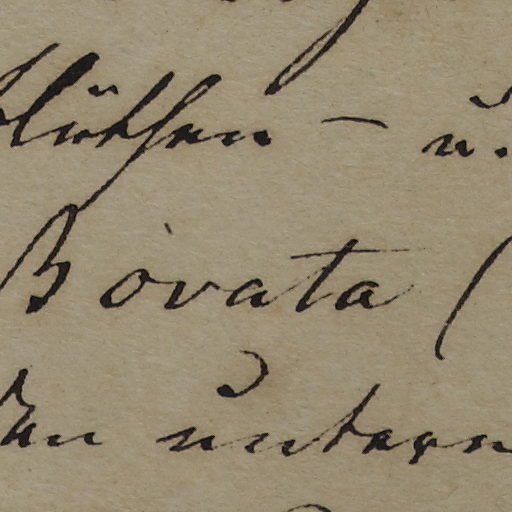 blüthen – u.
B ovata (
den untern